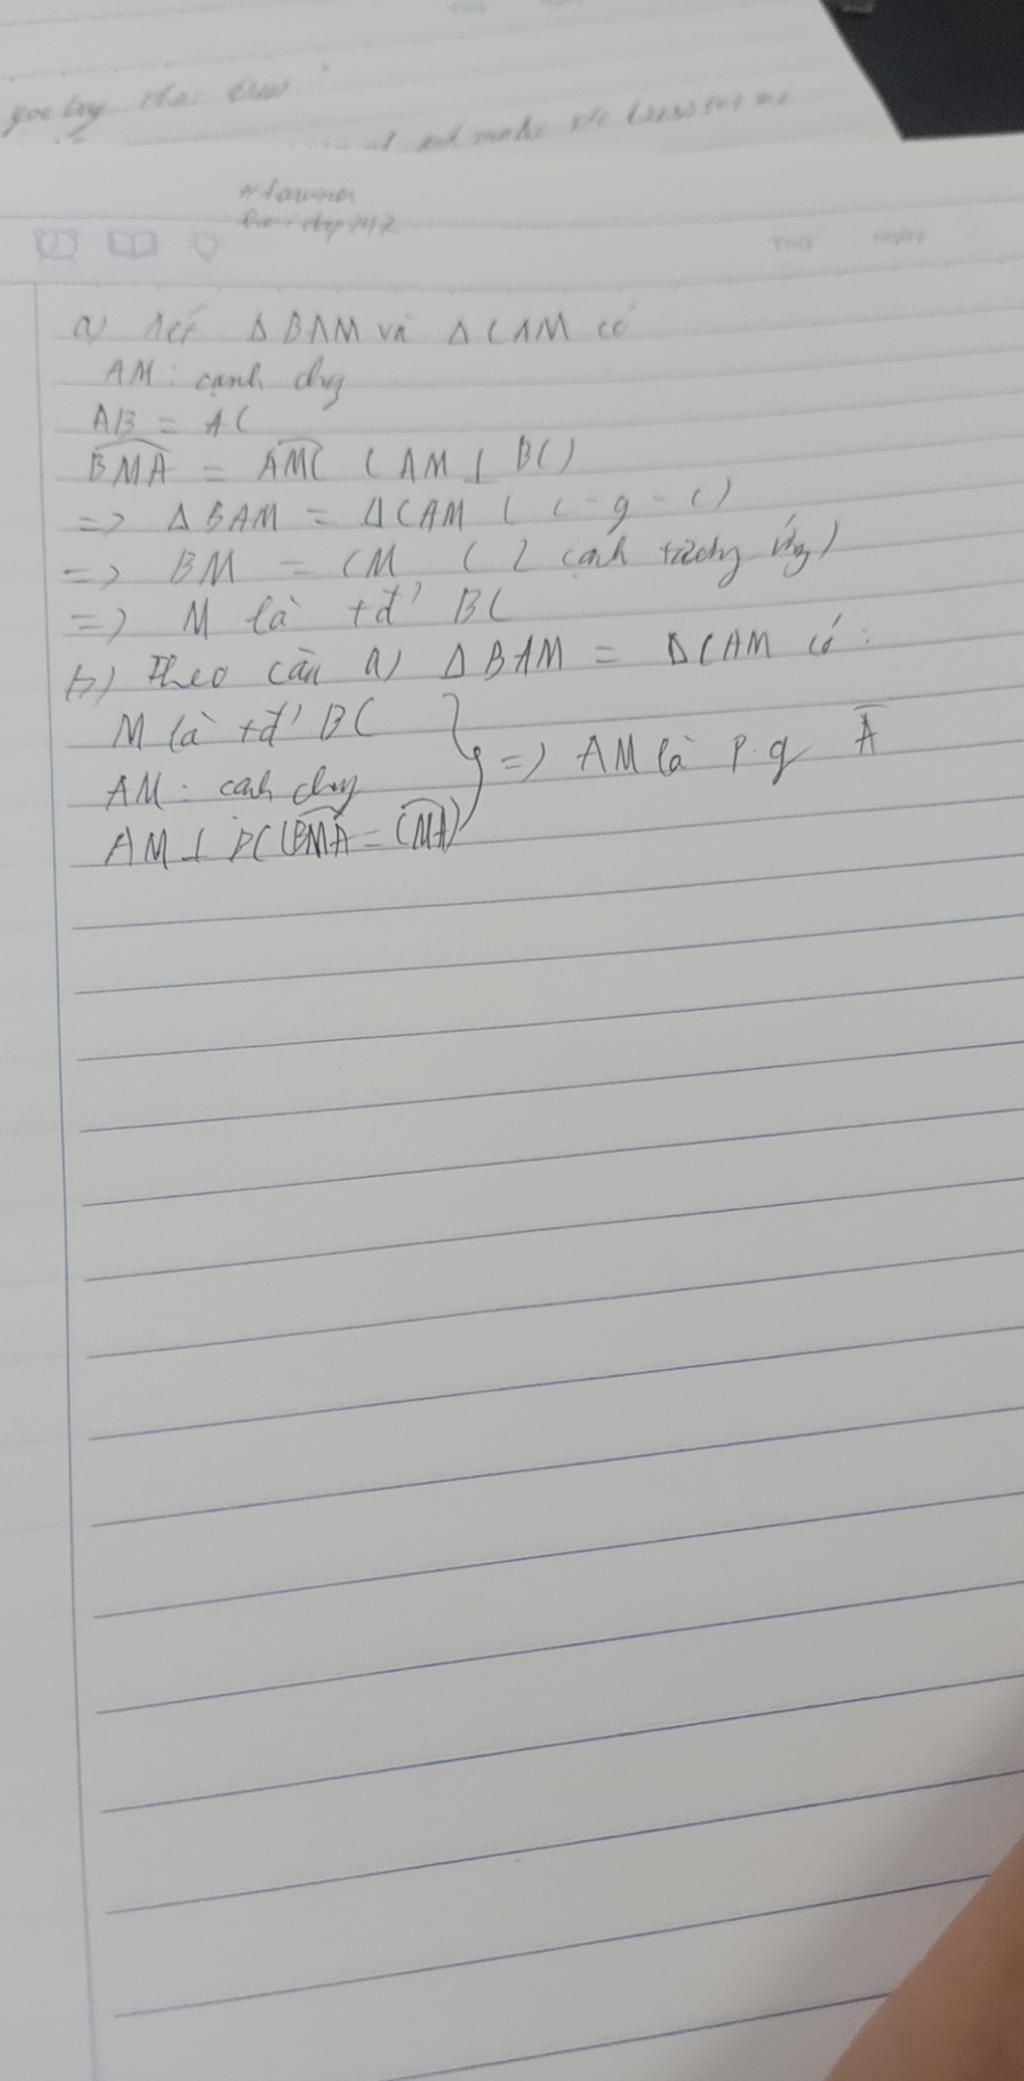 a) Xét Δ BAM và Δ CAM có
AM : cạnh chg
AB = AC
BMA = AMC ( AM ⊥ BC)
=> Δ BAM = Δ CAM ( c - g - c )
=> BM = CM ( 2 cạnh tương ứng)
=> M là tđ' BC
b) Theo câu a) Δ BAM = Δ CAM có :
M là tđ' BC
AM : cạnh chg
AM ⊥ BC (BMA = CMA)
=> AM là p.g A